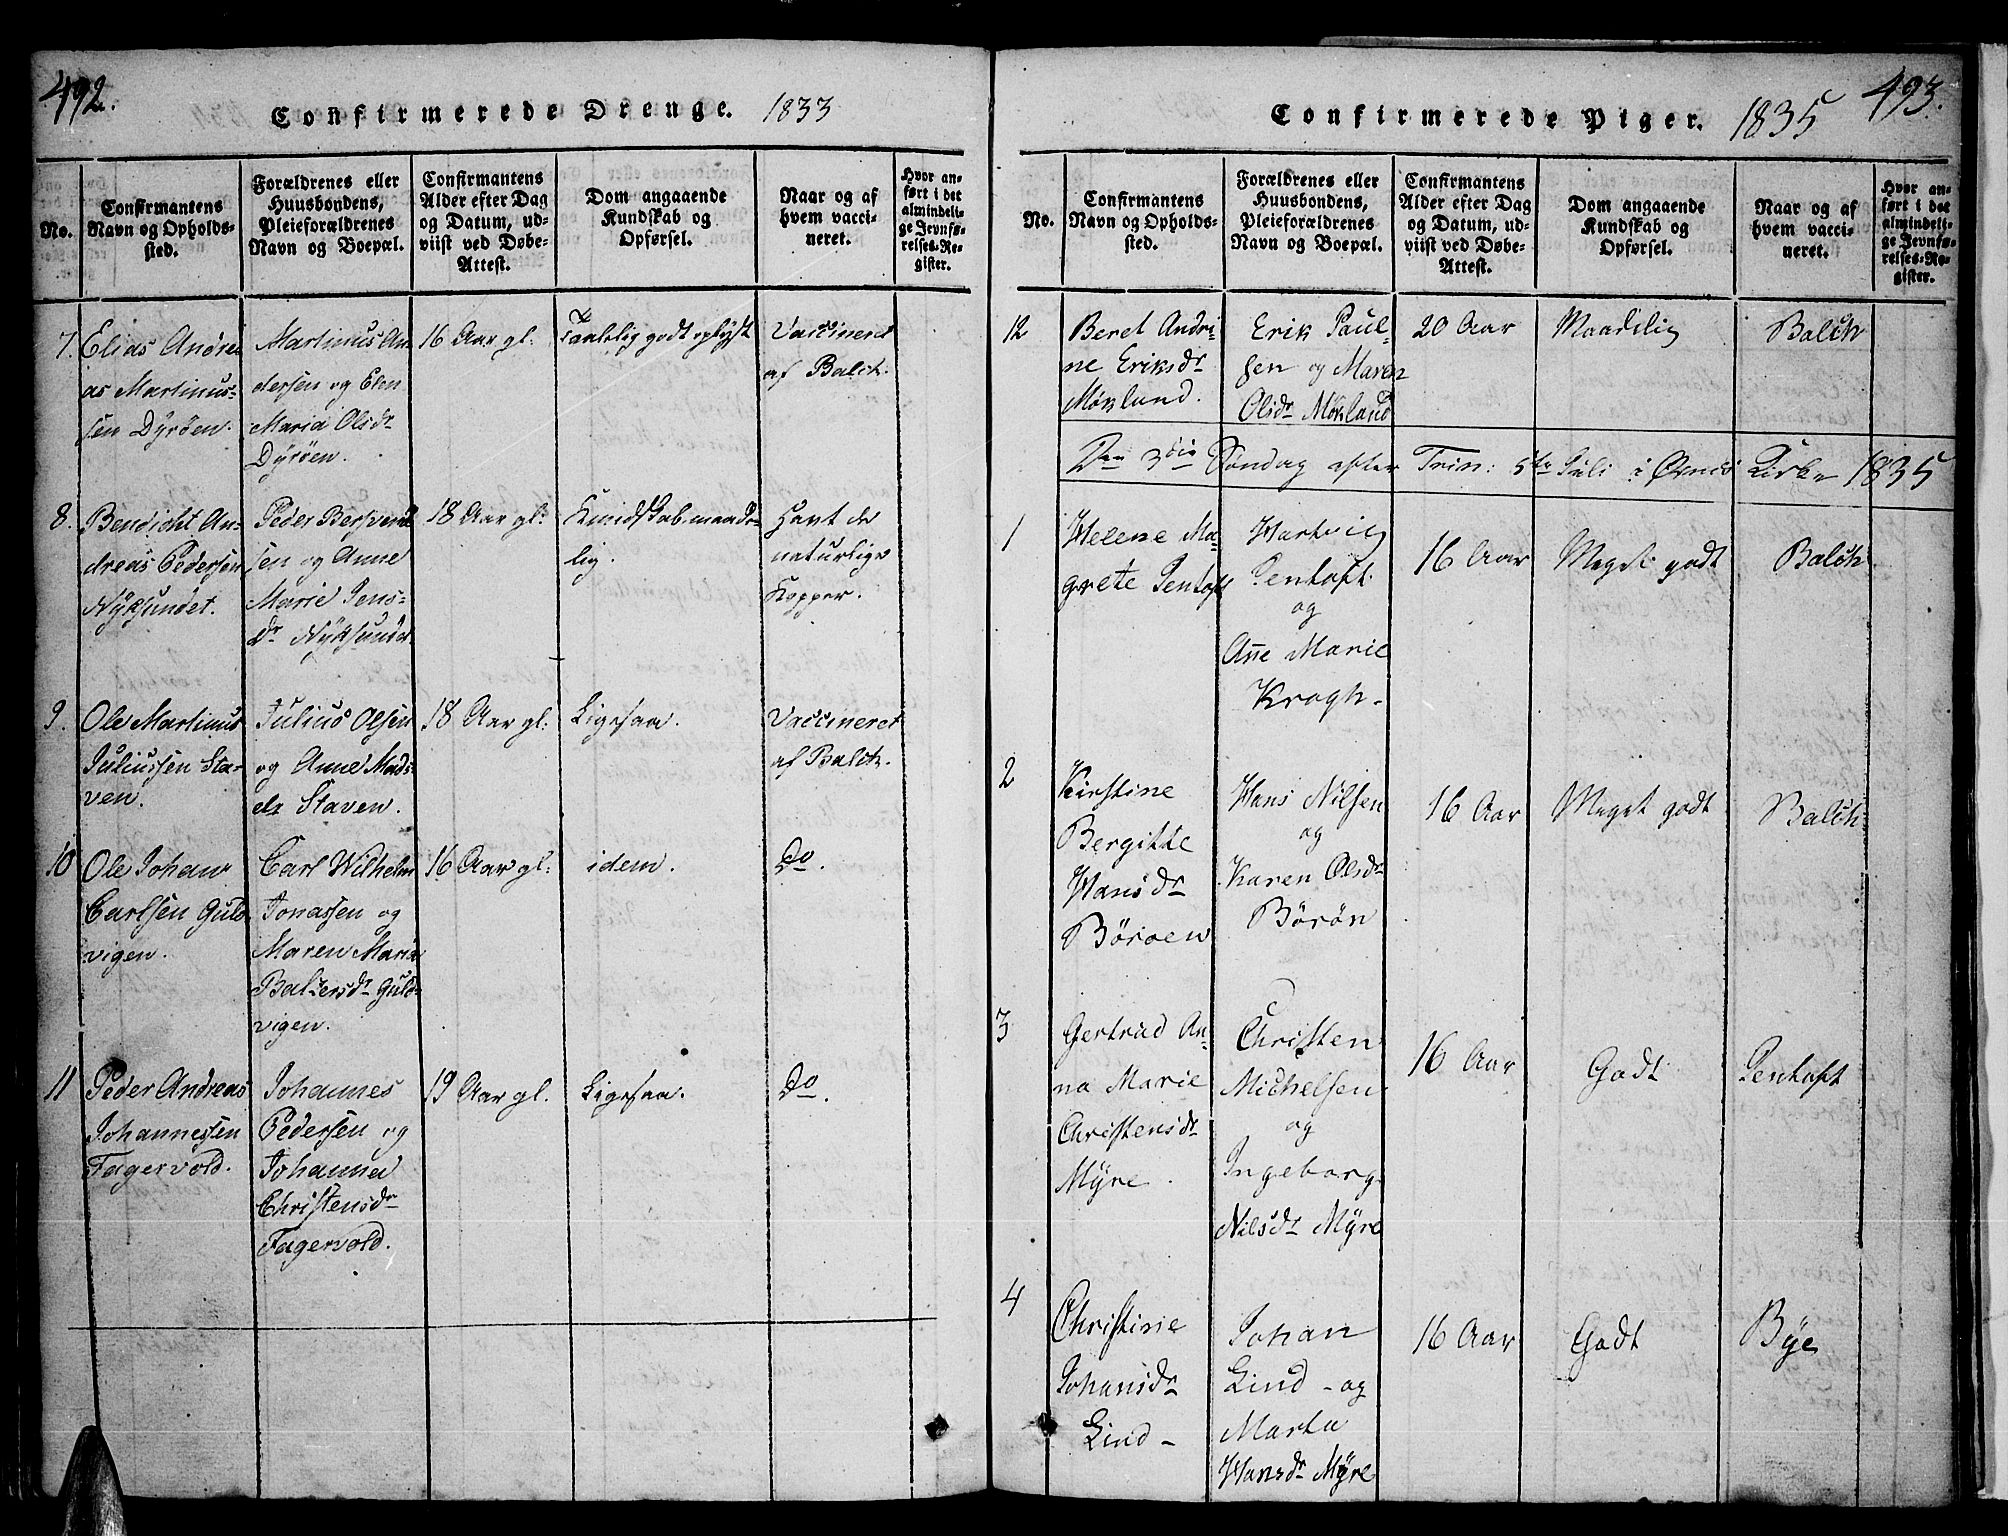 492.
Confirmerede Drenge. 1833
No.
Confirmantens
Navn og Opholds-
sted.
Forældrenes eller
Huusbondens,
Pleieforældrenes
Navn og Boepæl.
Confirmantens
Alder efter Dag
og Datum, ud-
viist ved Døbe-
Attest.
Dom angaaende
Kundskab og
Opførsel.
Naar og af
hvem vacci-
neret.
Hvor an-
ført i det
almindeli-
ge Jevnfø-
relses-Re-
gister.
7.
Elias Andre
as Martinus-
sen Dyröen.
Martinus An
dersen og Elen
Maria Olsdr
Dyröen.
16 Aar gl.
taalelig godt oplyst
Vaccineret
af Balch.
8.
Bendicht An-
dreas Pedersen
Nyksundet.
Peder Bersvend
sen og Anne
Marie Jens-
dr Nyksundet
18 Aar gl.
Kundskab maade-
lig.
Havt de
naturlige
Kopper.
9.
Ole Martinus
Juliussen Sta-
ven.
Julius Olsen
og Anne Mads
dr Staven.
18 Aar gl.
Ligesaa.
Vaccineret
af Balch.
10
Ole Johan
Carlsen Guld
vigen.
Carl Wilhelm
Jonassen og
Maren Maria
Baltersdr Guld-
vigen.
16 Aar gl.
idem.
Do.
11
Peder Andreas
Johannessen
Fagervold.
Johannes
Pedersen og
Johanna
Christensdr
Fagervold.
19 Aar gl.
Ligesaa.
Do.
493.
Confirmerede Piger. 1835
No.
Confirmantens
Navn og Opholds-
sted.
Forældrenes eller
Huusbondens,
Pleieforældrenes
Navn og Boepæl.
Confirmantens
Alder efter Dag
og Datum, ud-
viist ved Døbe-
Attest.
Dom angaaende
Kundskab og
Opførsel.
Naar og af
hvem vacci-
neret.
Hvor an-
ført i det
almindeli-
ge Jevnfø-
relses-Re-
gister.
12
Beret Andri-
ne Eriksdr
Møkland.
Erik Paul-
sen og Maren
Olsdr Møkland
20 Aar
Maadelig
Balch
Den 3die Søndag efter Trin: 5te Juli i Øxnes Kirke 1835
1
Helene Ma-
grete Jentoft
Hartvig
Jentoft
og
Ane Marie
Krogh.
16 Aar
Meget godt
Balch
2
Kirstine
Bergitte
Hansdr
Böröen
Hans Nilsen
og
Karen Olsdr
Börön
16 Aar
Meget godt
Balch
3
Gertrud An-
na Marie
Christensdr
Myre.
Christen
Michelsen
og
Ingeborg
Nilsdr Myre
16 Aar
Godt
Jentoft
4
Christine
Johansdr
Lind-
Johan
Lind - og
Marta
Hansdr Myre
16 Aar
Godt
Bye